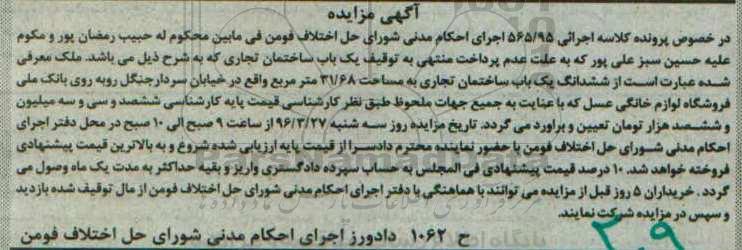 آگهی مزایده
در خصوص پرونده کلاسه اجرائی ۵۶۵/۹۵ اجرای احکام مدنی شورای حل اختلاف فومن فی مابین محکوم له حبیب رمضان پور و مکوم
علیه حسین سبز علی پور که به علت عدم پرداخت منتهی به توقیف یک باب ساختمان تجاری که به شرح ذیل می باشد. ملک معرفی
شده عبارت است از ششدانگ یک باب ساختمان تجاری به مساحت ۳۱/۶۸ متر مربع واقع در خیابان سردارجنگل روبه روی بانک ملی
فروشگاه لوازم خانگی عسل که با عنایت به جمیع جهات ملحوظ طبق نظر کارشناسی قیمت پایه کارشناسی ششصد و سی و سه میلیون
و ششصد هزار تومان تعیین و براورد می گردد. تاریخ مزایده روز سه شنبه ۹۶/۳/۲۷ از ساعت ۹ صبح الی ۱۰ صبح در محل دفتر اجرای
احکام مدنی شورای حل اختلاف فومن با حضور نماینده محترم دادسرا از قیمت پایه ارزیابی شده شروع و به بالاترین قیمت پیشنهادی
فروخته خواهد شد. ۱۰ درصد قیمت پیشنهادی فی المجلس به حساب سپرده دادگستری واریز و بقیه حداکثر به مدت یک ماه وصول می
گردد. خریداران ۵ روز قبل از مزایده می توانند با هماهنگی با دفتر اجرای احکام مدنی شورای حل اختلاف فومن از مال توقیف شده بازدید
و سپس در مزایده شرکت نمایند.
ح ۱۰۶۲ دادورز اجرای احکام مدنی شورای حل اختلاف فومن